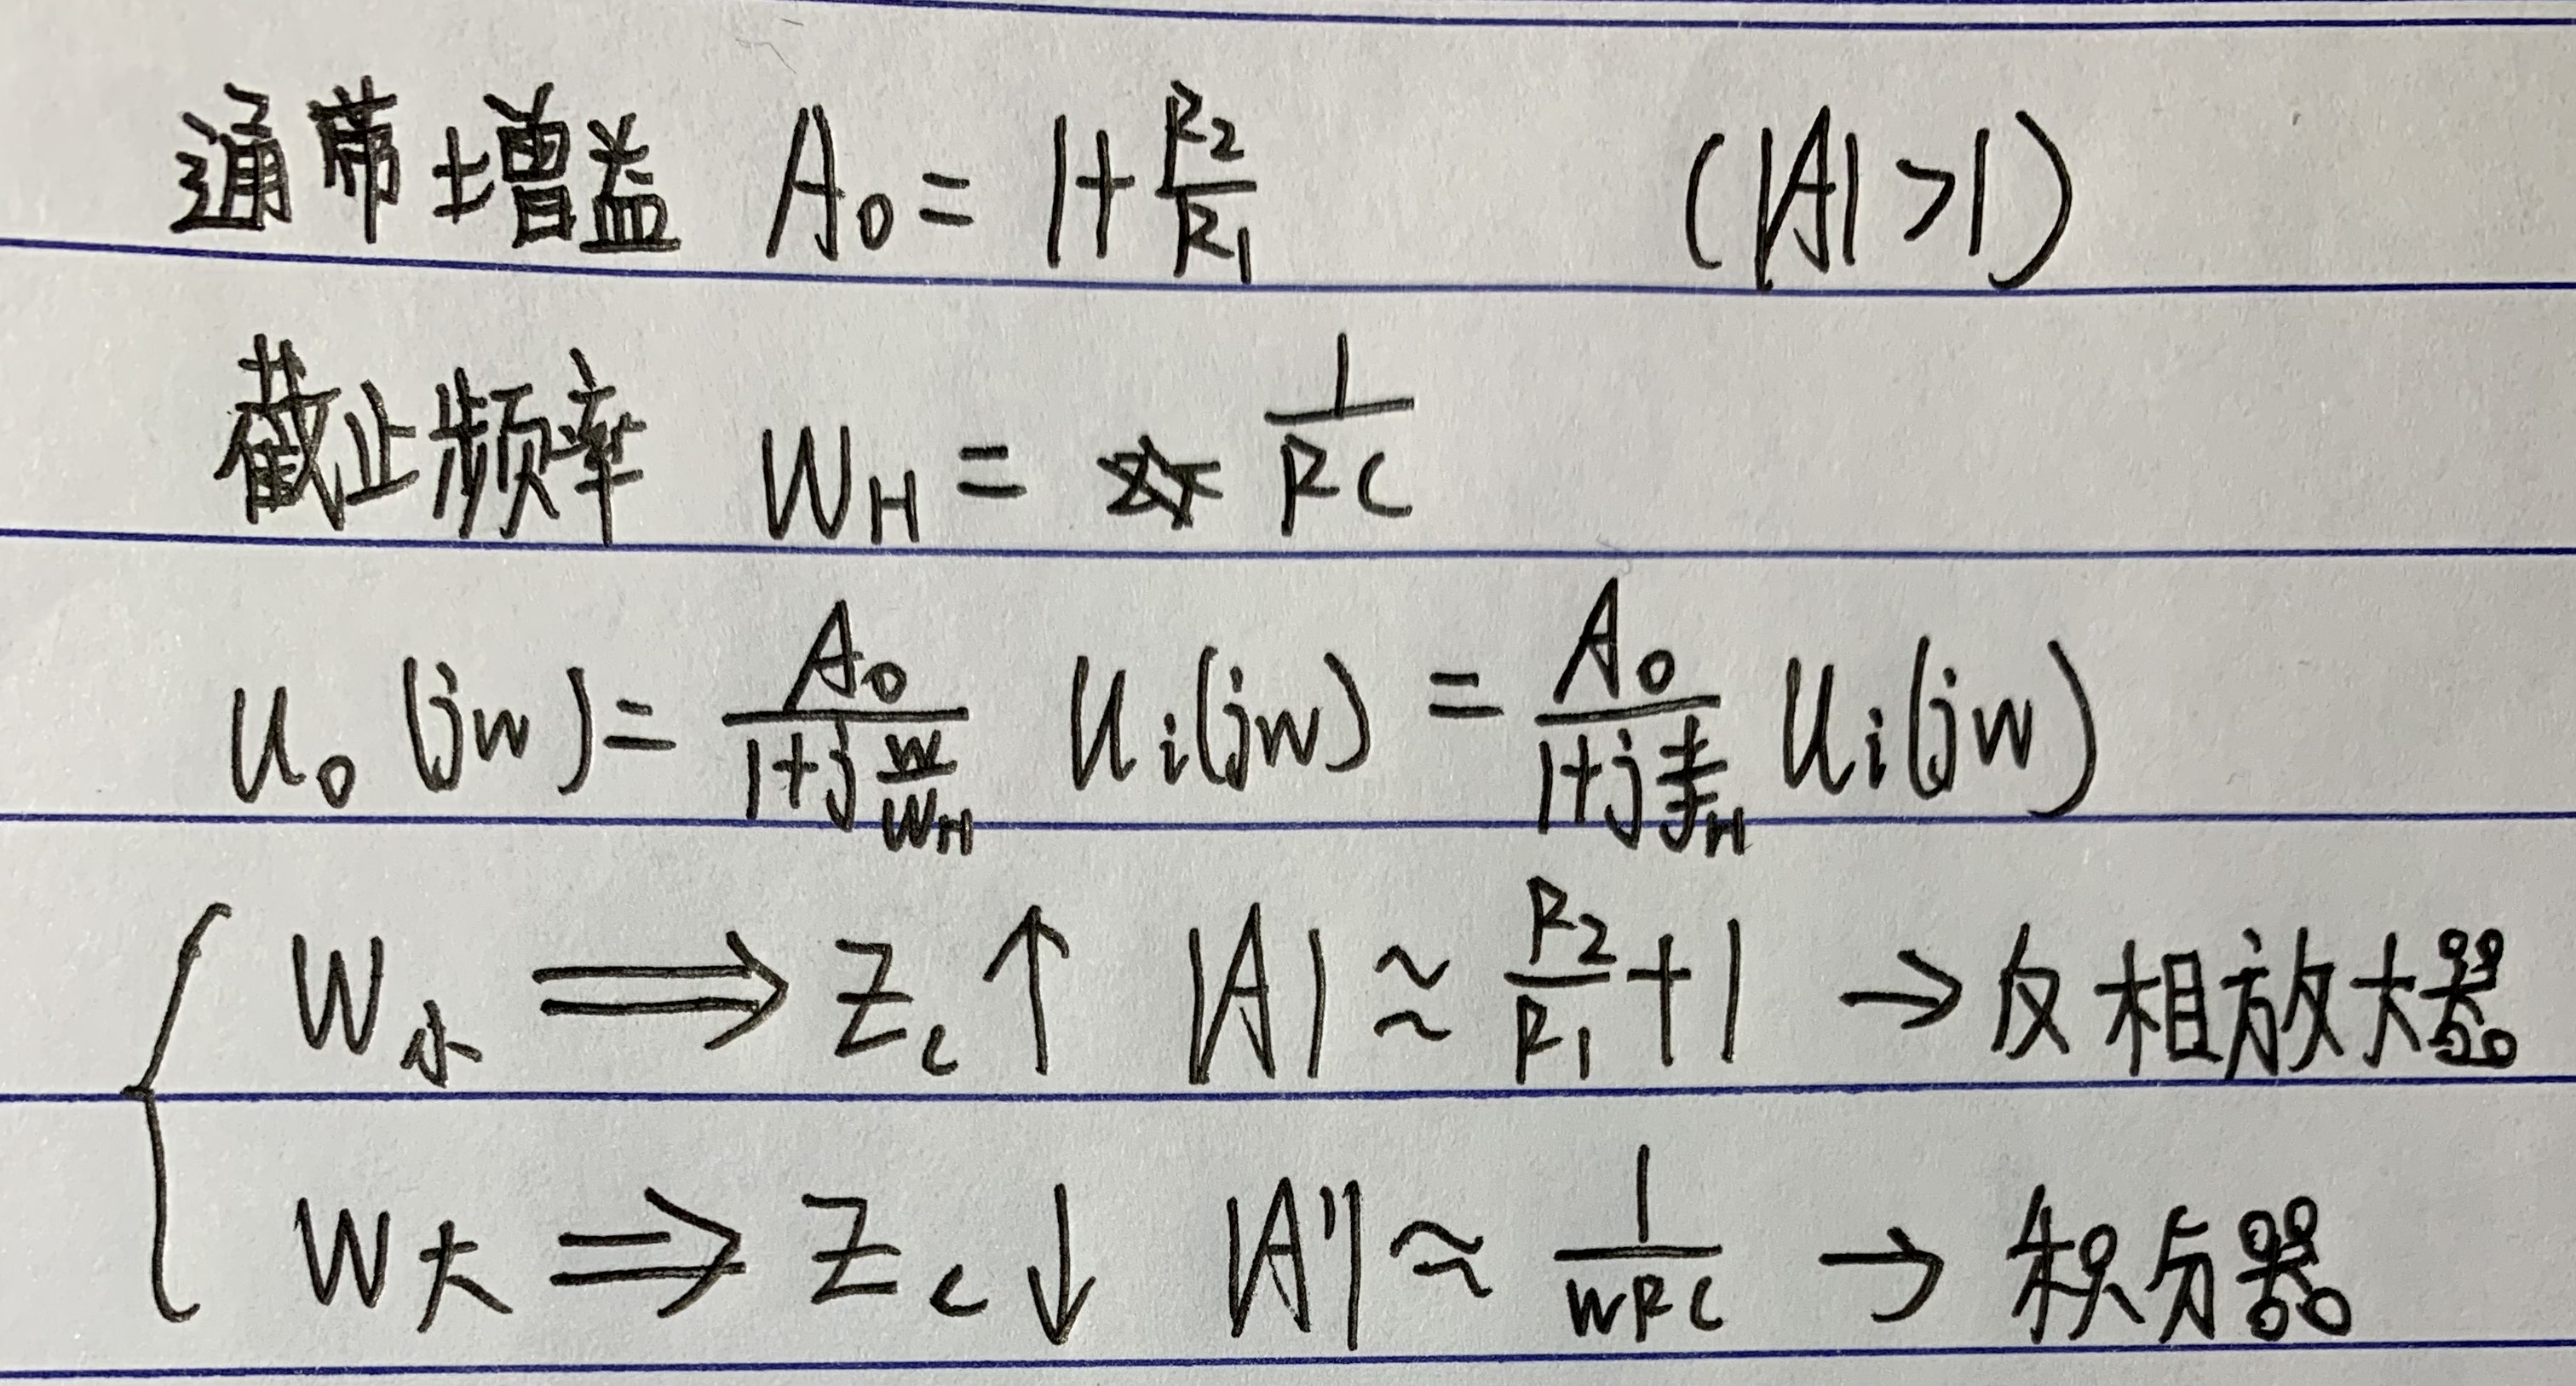 通带增益 A₀ = 1+R₂/R₁ (|A|>1)
截止频率 W_H = 1/RC
U₀(jw) = A₀/(1+j w/w_H) Uᵢ(jw) = A₀/(1+j f/f_H) Uᵢ(jw)
W小 ⟹ Z_c↑ |A| ≈ R₂/R₁+1 → 反相放大器
W大 ⟹ Z_c↓ |A'| ≈ 1/wRC → 积分器